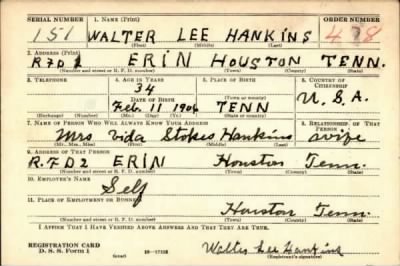 SERIAL NUMBER 1. NAME (Print) ORDER NUMBER
151 WALTER LEE HANKINS 478
(First) (Middle) (Last)
2. ADDRESS (Print)
RFD 2 ERIN HOUSTON TENN.
(Number and street or R. F. D. number) (Town) (County) (State)
3. TELEPHONE 4. AGE IN YEARS 5. PLACE OF BIRTH 6. COUNTRY OF CITIZENSHIP
34
DATE OF BIRTH (Town or county)
Feb. 11 1906 TENN U.S.A.
(Exchange) (No.) (Mo.) (Day) (Yr.) (State or country)
7. NAME OF PERSON WHO WILL ALWAYS KNOW YOUR ADDRESS 8. RELATIONSHIP OF THAT PERSON
Mrs Vida Stokes Hankins wife
(Mr., Mrs., Miss) (First) (Middle) (Last)
9. ADDRESS OF THAT PERSON
R.F.D2 ERIN Houston Tenn.
(Number and street or R. F. D. number) (Town) (County) (State)
10. EMPLOYER'S NAME
Self
11. PLACE OF EMPLOYMENT OR BUSINESS
Houston Tenn.
(Number and street or R. F. D. number) (Town) (County) (State)
I AFFIRM THAT I HAVE VERIFIED ABOVE ANSWERS AND THAT THEY ARE TRUE.
REGISTRATION CARD
D. S. S. Form 1 (over) Walter Lee Hankins
(Registrant's signature)